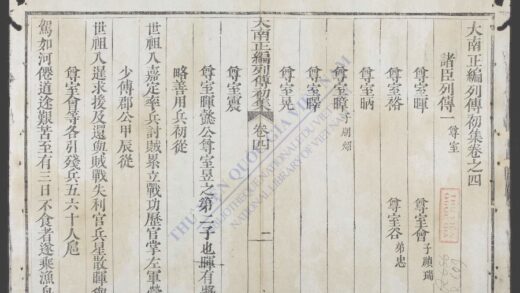 大南正編列傳初集卷之四
諸臣列傳一 尊室
尊室暉 尊室會 子
尊室裕 尊室谷 弟忠
尊室昞
尊室暲 子
尊室曎
尊室晃
大南正編列傳初集 卷四 一
尊室震
尊室暉懿公尊室昱之第二子也暉有將
略善用兵初從
世祖入嘉定率兵討賊累立戰功歷官掌左軍營
少傅郡公甲辰從
世祖入暹求援及還與賊戰失利官兵星散暉
尊室會等各引殘兵五六十人扈
駕如河僊道途艱苦至有三日不食者遂乘漁
THƯ VIỆN QUỐC GIA VIỆT NAM
BIBLIOTHÈQUE NATIONALE DU VIETNAM
NATIONAL LIBRARY OF VIETNAM